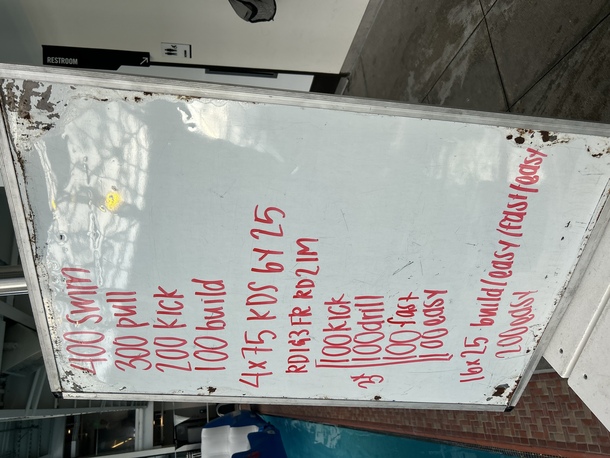 RESTROOM
400 swim
300 pull
200 kick
100 build
4x75 KDS by 25
RD1&3 FR RD2 IM
100 kick
3x 100 drill
100 fast
100 easy
16x25 build/easy/fast/easy
200 easy